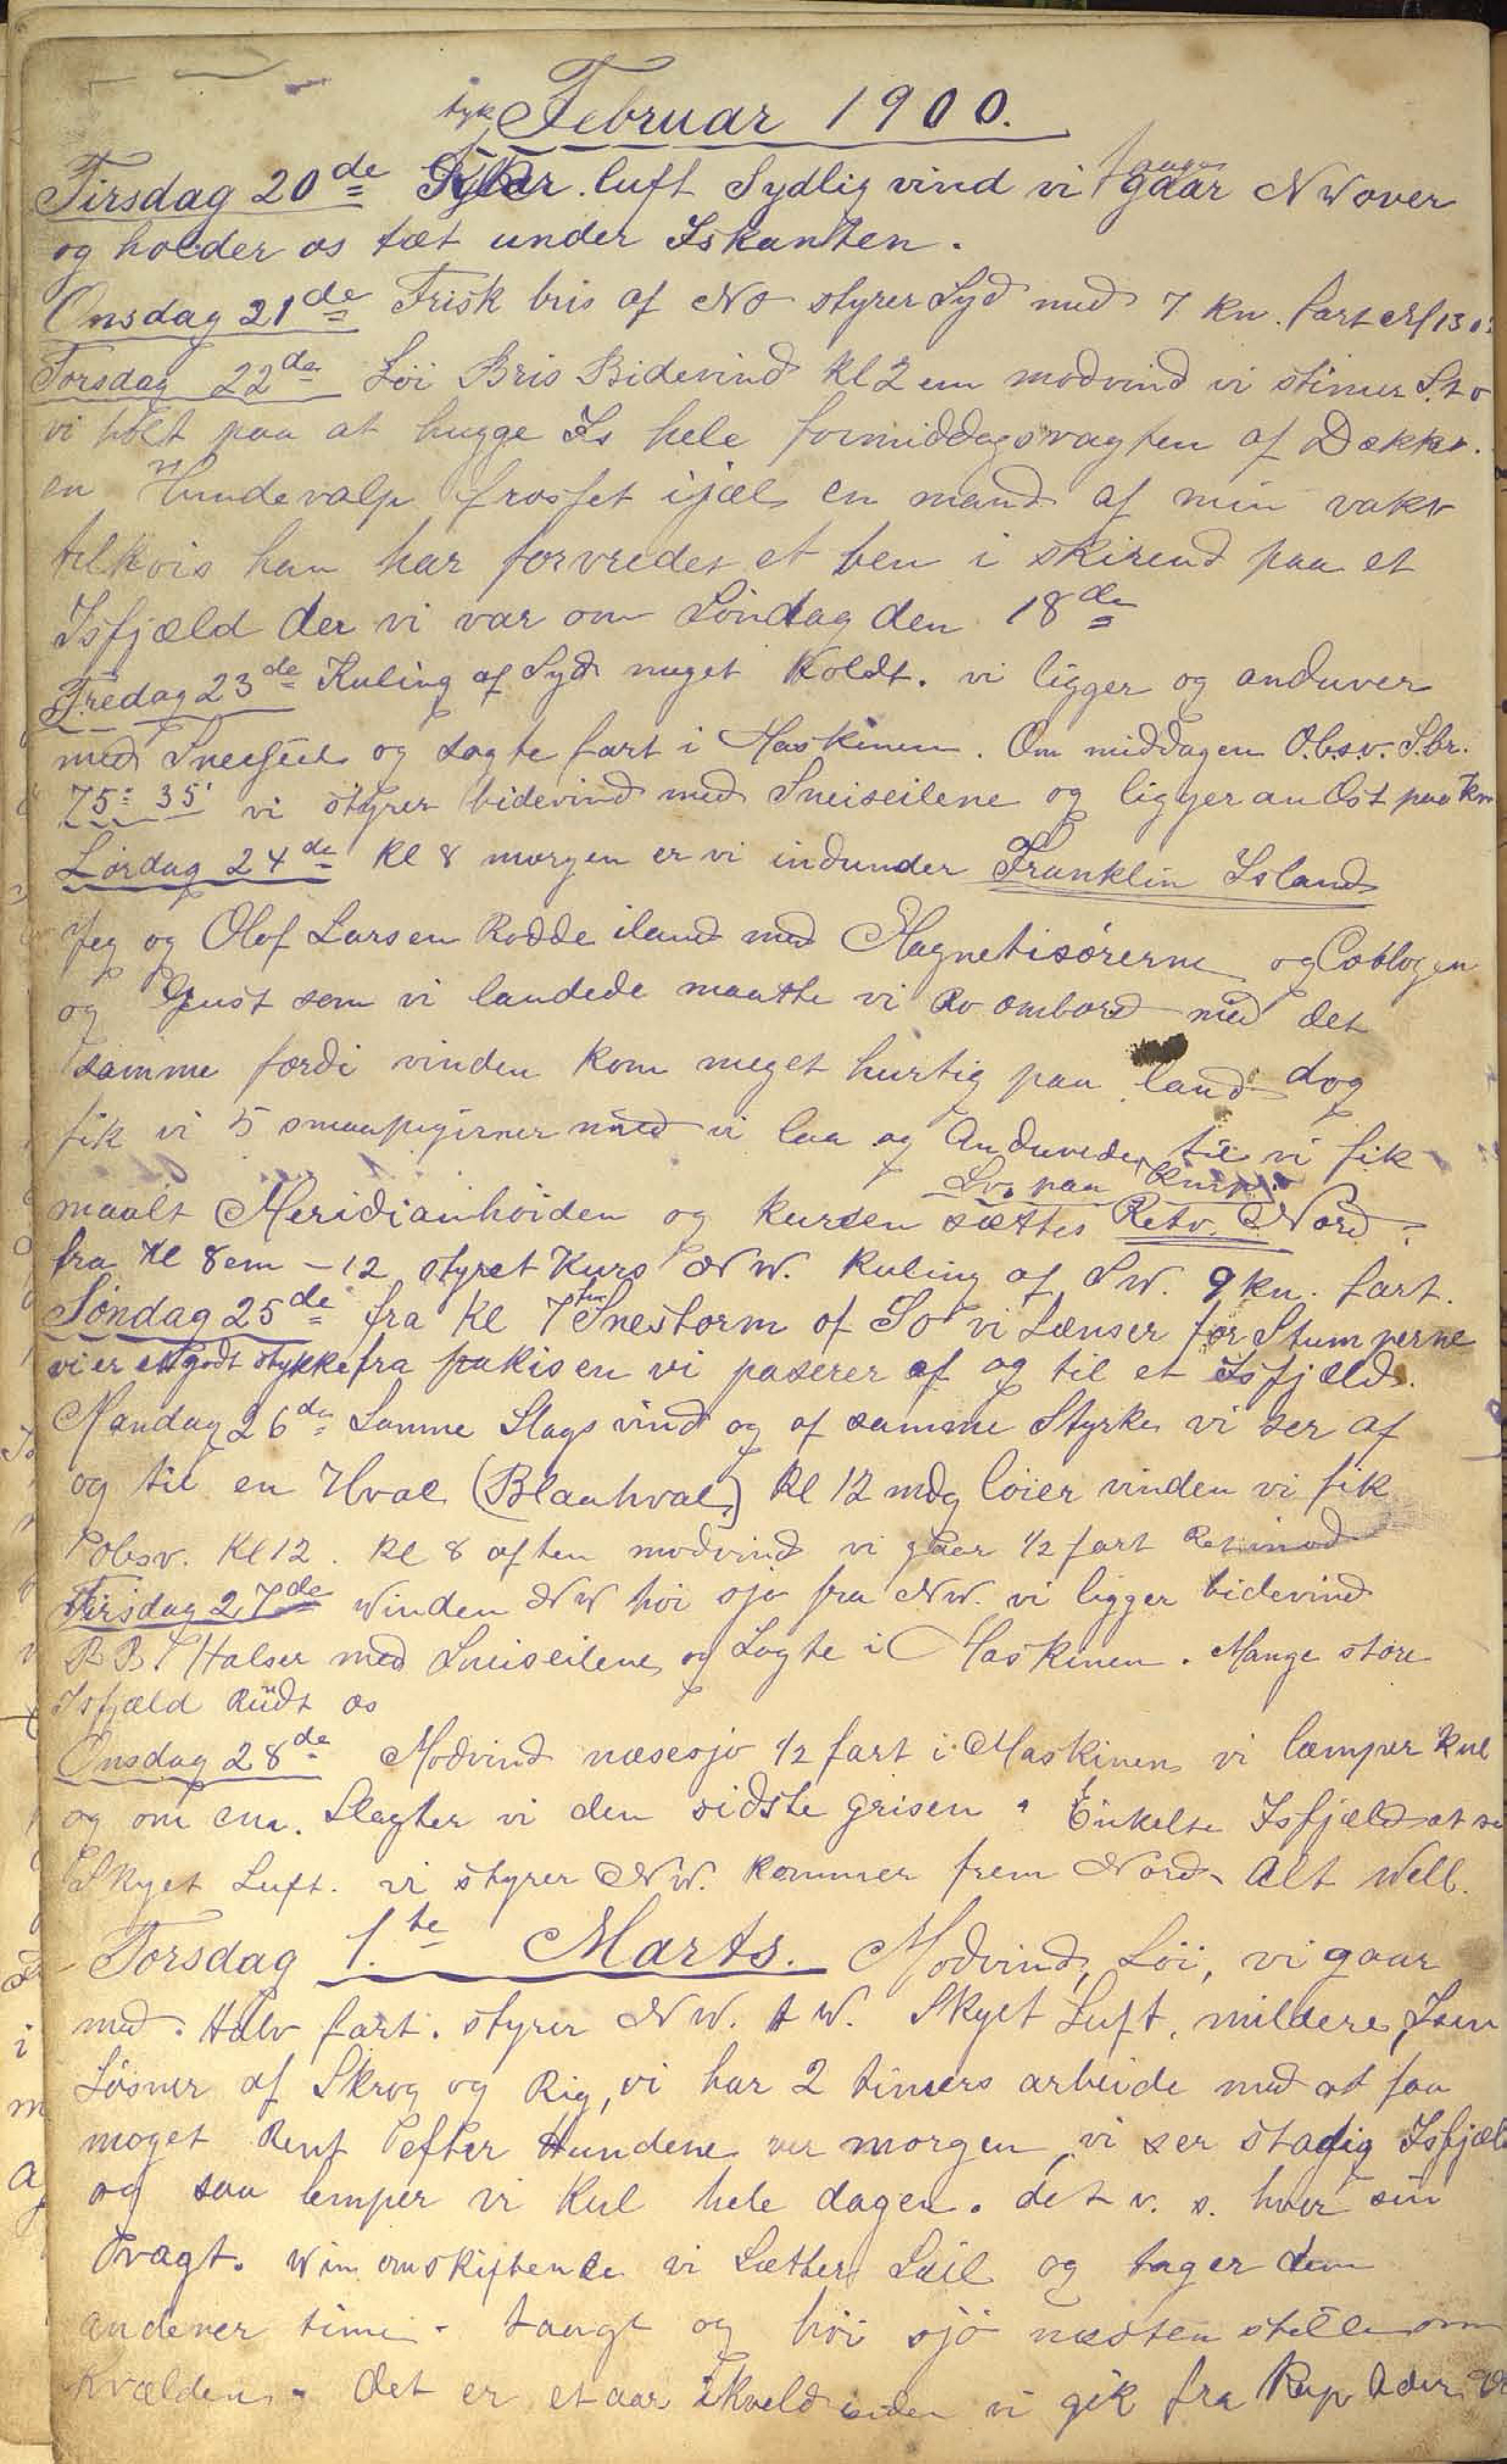 Februar 1900.
tyk
Tirsdag 20de luft Sydlig vind vi gaar NWover
og holder os tæt under Iskanten.
Onsdag 21de Frisk bris af NO styrer Syd med 7 kn. fart
Torsdag 22de Löi Bris Bidevind Kl 2 em modvind vi stimer
vi holt paa at hugge Is hele formiddagsvagten af Dækket.
en Hundevalp frosset ijæl en mand af min vakt
han har forvredet et ben i skirend paa et
Isfjæld der vi var om Söndag den 18de
Fredag 23de Kuling af Syd meget Koldt. vi ligger og anduver
med og sagte fart i Maskinen. Om middagen Obsv. S.br.
75° 35' vi styrer bidevind med Sneiseilene og ligger an Ost paa Km
Lördag 24de Kl 8 morgen er vi indunder Franklin Island
Jeg og Olof Larsen Rodde iland med Magnetisörerne og
og Just som vi landede maatte vi Ro ombord med det
samme fordi vinden kom meget hurtig paa land dog
fik vi 5 smaapigviner med vi laa og Anduvede til vi fik
paa Kmp.
maalt Meridianhöiden og kursen sættes Retv. Nord.
fra Kl 8em - 12 styret Kurs NW. Kuling af SW. 9 kn. fart.
fm
Söndag 25de fra Kl 7 Snestorm af SO vi Lænser for Stumperne
vi er et godt stykke fra pakisen vi paserer af og til et Isfjæld.
Mandag 26de Samme Slags vind og af samme Styrke vi ser af
og til en Hval (Blaahval) Kl 12 mdg löier vinden vi fik
obsv. Kl 12. Kl 8 aften modvind vi gaar 1/2 fart Ret imod
Tirsdag 27de Winden NW höi sjö fra NW. vi ligger bidevind
B.B. Halser med Sneiseilene og Sagte i Maskinen. Mange store
Isfjæld Rundt os
Onsdag 28de Modvind næsesjö 1/2 fart i Maskinen vi læmper kul
og om em. Slagter vi den sidste grisen. Enkelte Isfjæld at se
Skyet Luft. vi styrer NW. kommer frem Nord Alt Well.
Torsdag 1.te Marts. Modvind, Löi, vi gaar
med Halv fart. styrer NW. t W. Skyet Luft, mildere, Isen
Lösner af Skrog og Rig, vi har 2 timers arbeide med at faa
moget Rent efter Hundene ver morgen, vi ser stadig Isfjæld
og saa lemper vi Kul hele dagen. det v. s. hver sin
vagt. Win omskiftende vi Sætter Seil og tager dem
andenver time. tungt og höi sjö næsten stille om
kvælden. det er et aar ikveld siden vi gik fra Kap Adar